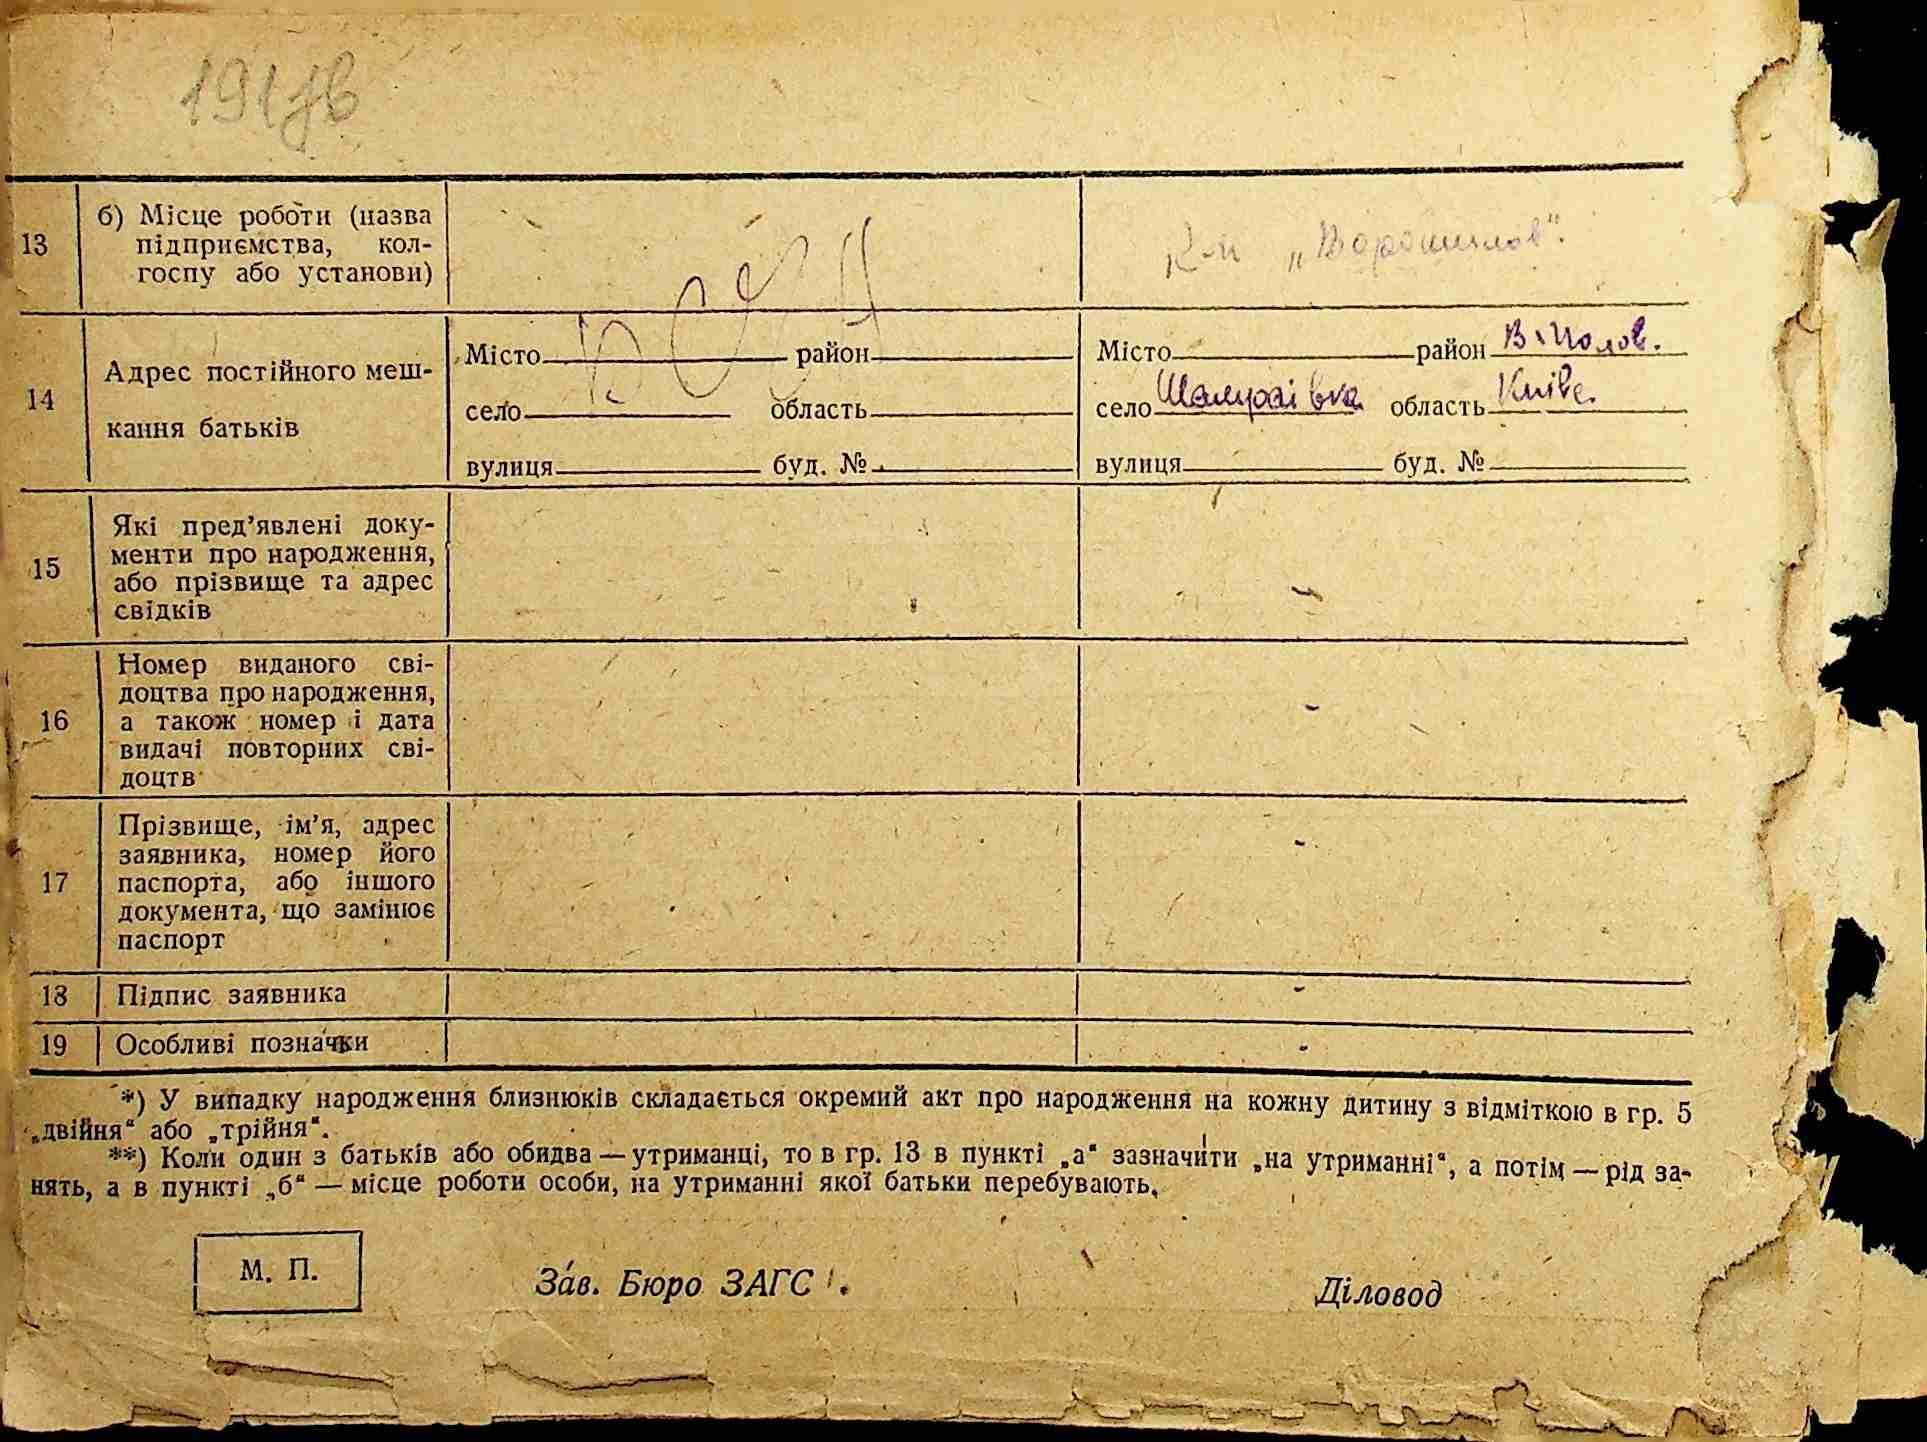 13
б) Місце роботи (назва
підприємства, кол-
госпу або установи)
К-п „Ворошилов“.
14
Адрес постійного меш-
кання батьків
Місто район
село область
вулиця буд. №
Місто район В-Полов.
село Шамраївка область Київс.
вулиця буд. №
15
Які пред’явлені доку-
менти про народження,
або прізвище та адрес
свідків
-
16
Номер виданого сві-
доцтва про народження,
а також номер і дата
видачі повторних сві-
доцтв
-
17
Прізвище, ім’я, адрес
заявника, номер його
паспорта, або іншого
документа, що замінює
паспорт
-
18 Підпис заявника -
19 Особливі позначки -
*) У випадку народження близнюків складається окремий акт про народження на кожну дитину з відміткою в гр. 5
„двійня“ або „трійня“.
**) Коли один з батьків або обидва — утриманці, то в гр. 13 в пункті „а“ зазначити „на утриманні“, а потім — рід за-
нять, а в пункті „б“ — місце роботи особи, на утриманні якої батьки перебувають.
М. П.
Зав. Бюро ЗАГС
Діловод